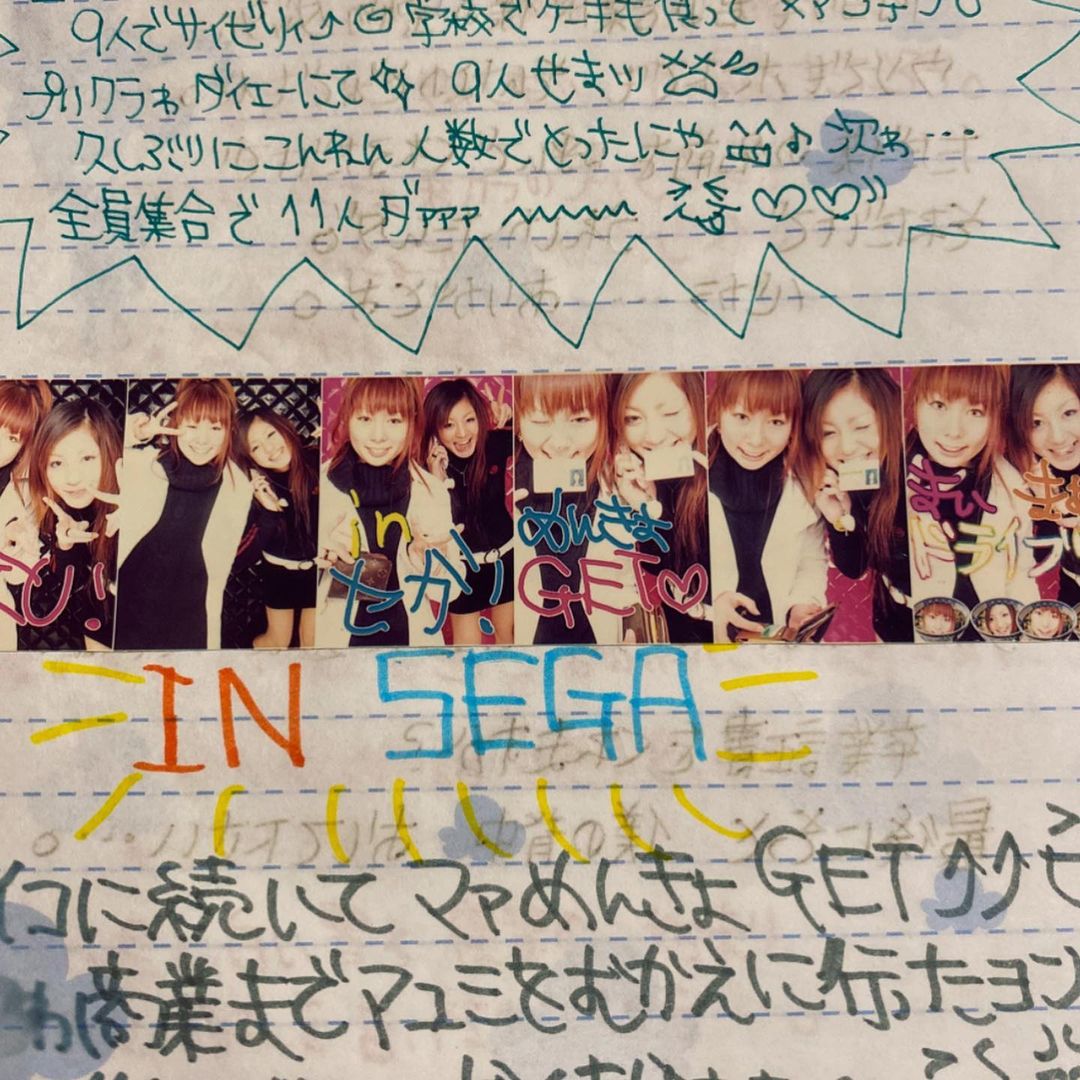 9人でサイゼリィ↑ 学校でケーキも食って
プリクラゎ ダイエーにて 9人せまッ
久しぶりにこんねん人数でとったにゃ ♪ 次ゎ…
全員集合で 11人ダァァァ 〜〜〜 ♡♡"
い!
in
セガ!
めんきょ
GET♡
まい
ドライブ
IN SEGA
イコに続いて マァめんきょ GET↑↑
ゎ 商業までマユミをむかえに行ったヨン